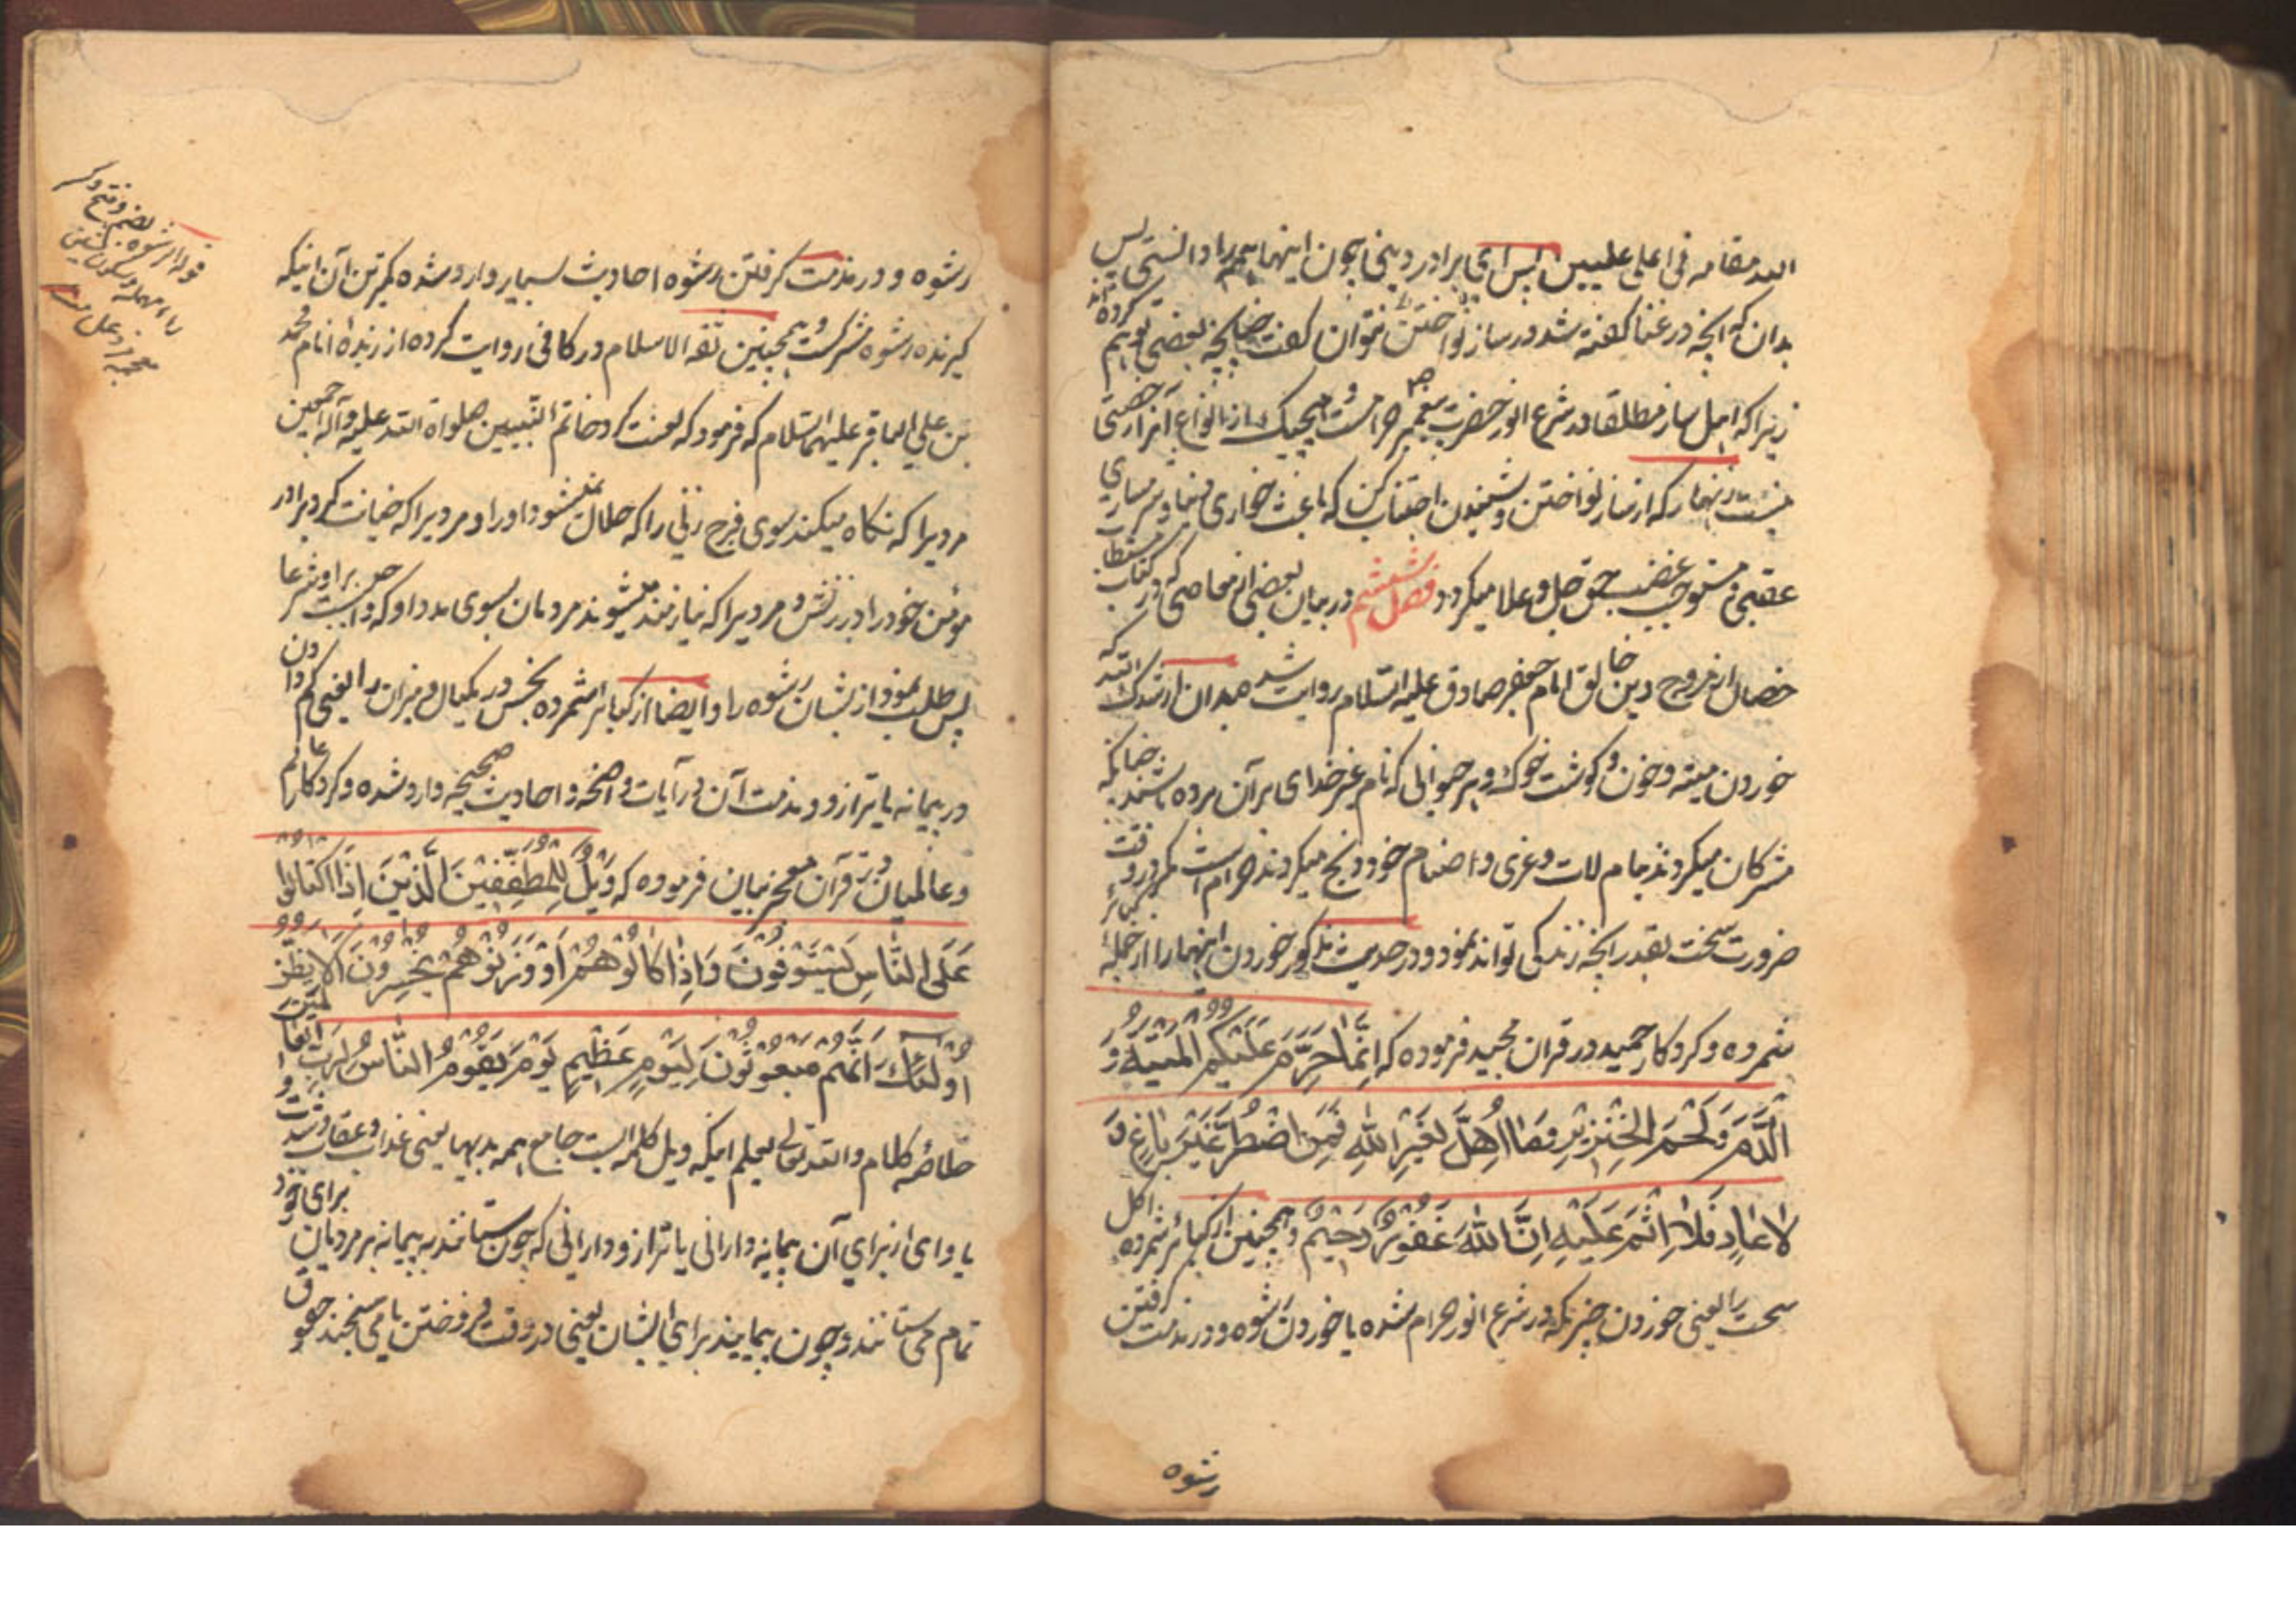 الله مقامه فی اعلی علیین پس ای برادر دینی چون اینها همه را دانستی پس
بدان که آنچه در غنا گفته شد در ساز نواختن نتوان گفت چنانچه بعضی توهم کرده‌اند
زیرا که اصل ساز مطلقا در شرع انور حضرت پیغمبر ص حرامست و هیچیک از انواع آنرا رخصتی
نیست زنهار که از ساز نواختن و شنیدن اجتناب کن که باعث خواری دنیا و شرمساری
عقبی و مستوجب غضب حق جل و علا میگردد فصل ششم در بیان بعضی از معاصی که در کتاب مستطاب
خصال از مروج دین خالق امام جعفر صادق علیه السلام روایت شد بدان ارشدک الله که
خوردن میته و خون و گوشت خوک و هر حیوانی که نام غیر خدای بر آن برده باشند چنانکه
مشرکان میکردند بنام لات و عزی و اصنام خود ذبح میکردند حرام است مگر در وقت
ضرورت سخت بقدر آنچه زندگی تواند نمود و در حدیث مذکور خوردن اینها را از جمله کبائر
شمرده و کردکار حمید در قرآن مجید فرموده که اِنَّمَا حَرَّمَ عَلَیْکُمُ الْمَیْتَةَ وَ
الدَّمَ وَ لَحْمَ الْخِنْزِیْرِ وَمَا اُهِلَّ لِغَیْرِ اللهِ فَمَنِ اضْطُرَّ غَیْرَ بَاغٍ وَ
لَا عَادٍ فَلَا اِثْمَ عَلَیْهِ اِنَّ اللهَ غَفُوْرٌ رَحِیْمٌ و همچنین از کبائر شمرده اکل
سحت را یعنی خوردن چیزیکه در شرع انور حرام شده یا خوردن رشوه و در مذمت گرفتن
رشوه
رشوه و در مذمت گرفتن رشوه احادیث بسیار وارد شده کمترین آن اینکه
گیرنده رشوه مشرکست و همچنین ثقة الاسلام در کافی روایت کرده از زبده انام محمد
بن علی الباقر علیهما السلام که فرمود که لعنت کرد خاتم النبیین صلواة الله علیه وآله اجمعین
مردیرا که نگاه میکند بسوی فرج زنی را که حلال نمیشود او را و مردیرا که خیانت کرد برادر
مؤمن خود را در زنش و مردیرا که نیازمند میشوند مردمان بسوی مدد او که واجبست بر او شرعا
پس طلب نمود از یشان رشوه را و ایضا از کبائر شمرده بخس در مکیال و میزان را یعنی کم دادن
در پیمانه یا ترازو و مذمت آن در آیات واضحه و احادیث صحیحه وارد شده و کردکار عالم
و عالمیان در قرآن معجز بیان فرموده که وَیْلٌ لِلْمُطَفِّفِیْنَ الَّذِیْنَ اِذَا اکْتَالُوْا
عَلَی النَّاسِ یَسْتَوْفُوْنَ وَاِذَا کَالُوْهُمْ اَوْ وَزَنُوْهُمْ یُخْسِرُوْنَ اَلَا یَظُنُّ
اُولٰئِكَ اَنَّهُمْ مَبْعُوْثُوْنَ لِیَوْمٍ عَظِیْمٍ یَوْمَ یَقُوْمُ النَّاسُ لِرَبِّ الْعَالَمِیْنَ
کلام والله تعالی یعلم اینکه ویل کلمه ایست جامع همه بدیها یعنی عذاب و عقاب و شدت
یا وای از برای آن پیمانه دارانی یا ترازو دارانی که چون ستانند به پیمانه بر مردمان برای خود
تمام می ستانند و چون بپیمایند برای ایشان یعنی در وقت فروختن یا می سنجند حقوق
قوله الرشوه
بضم و فتح و کسر